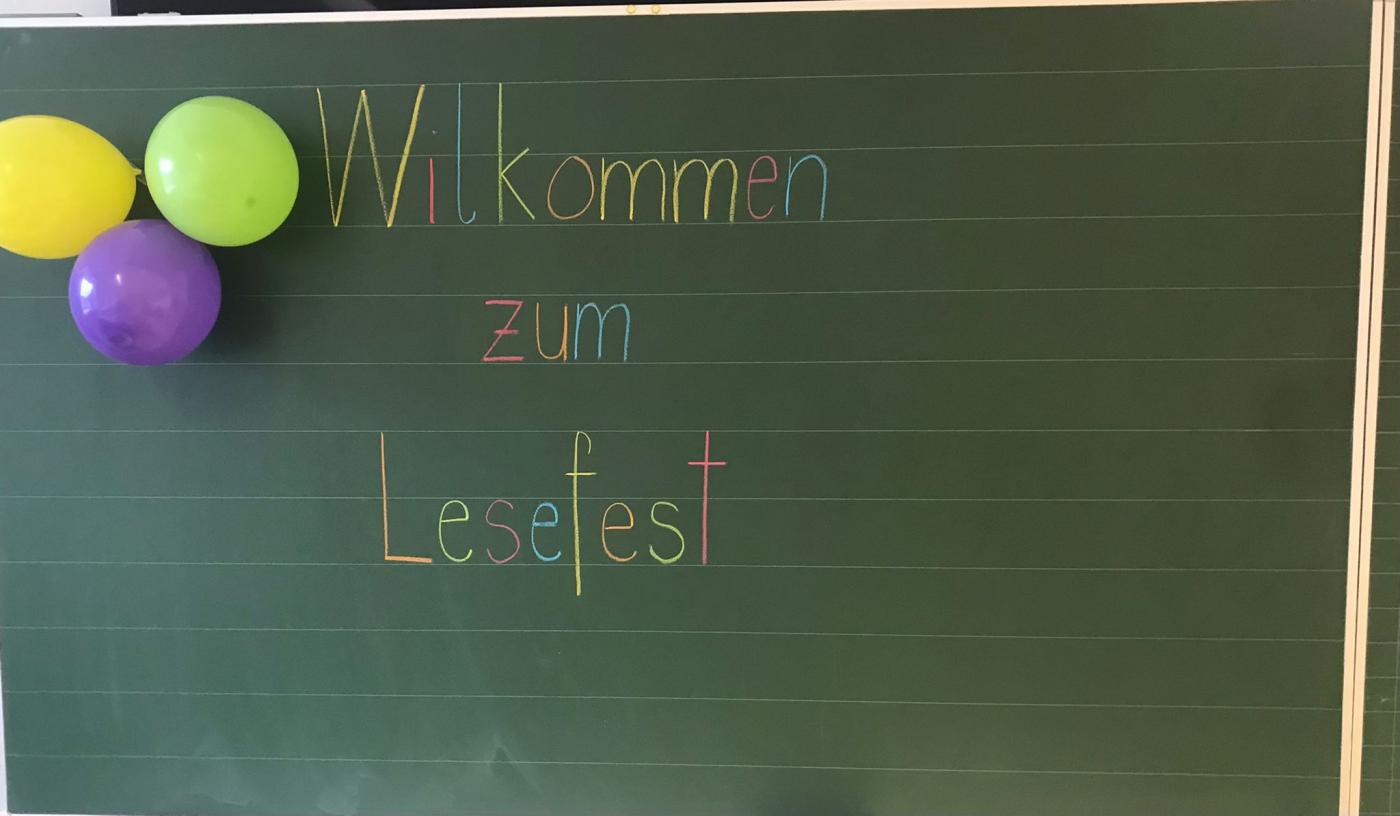 Wilkommen
zum
Lesefest